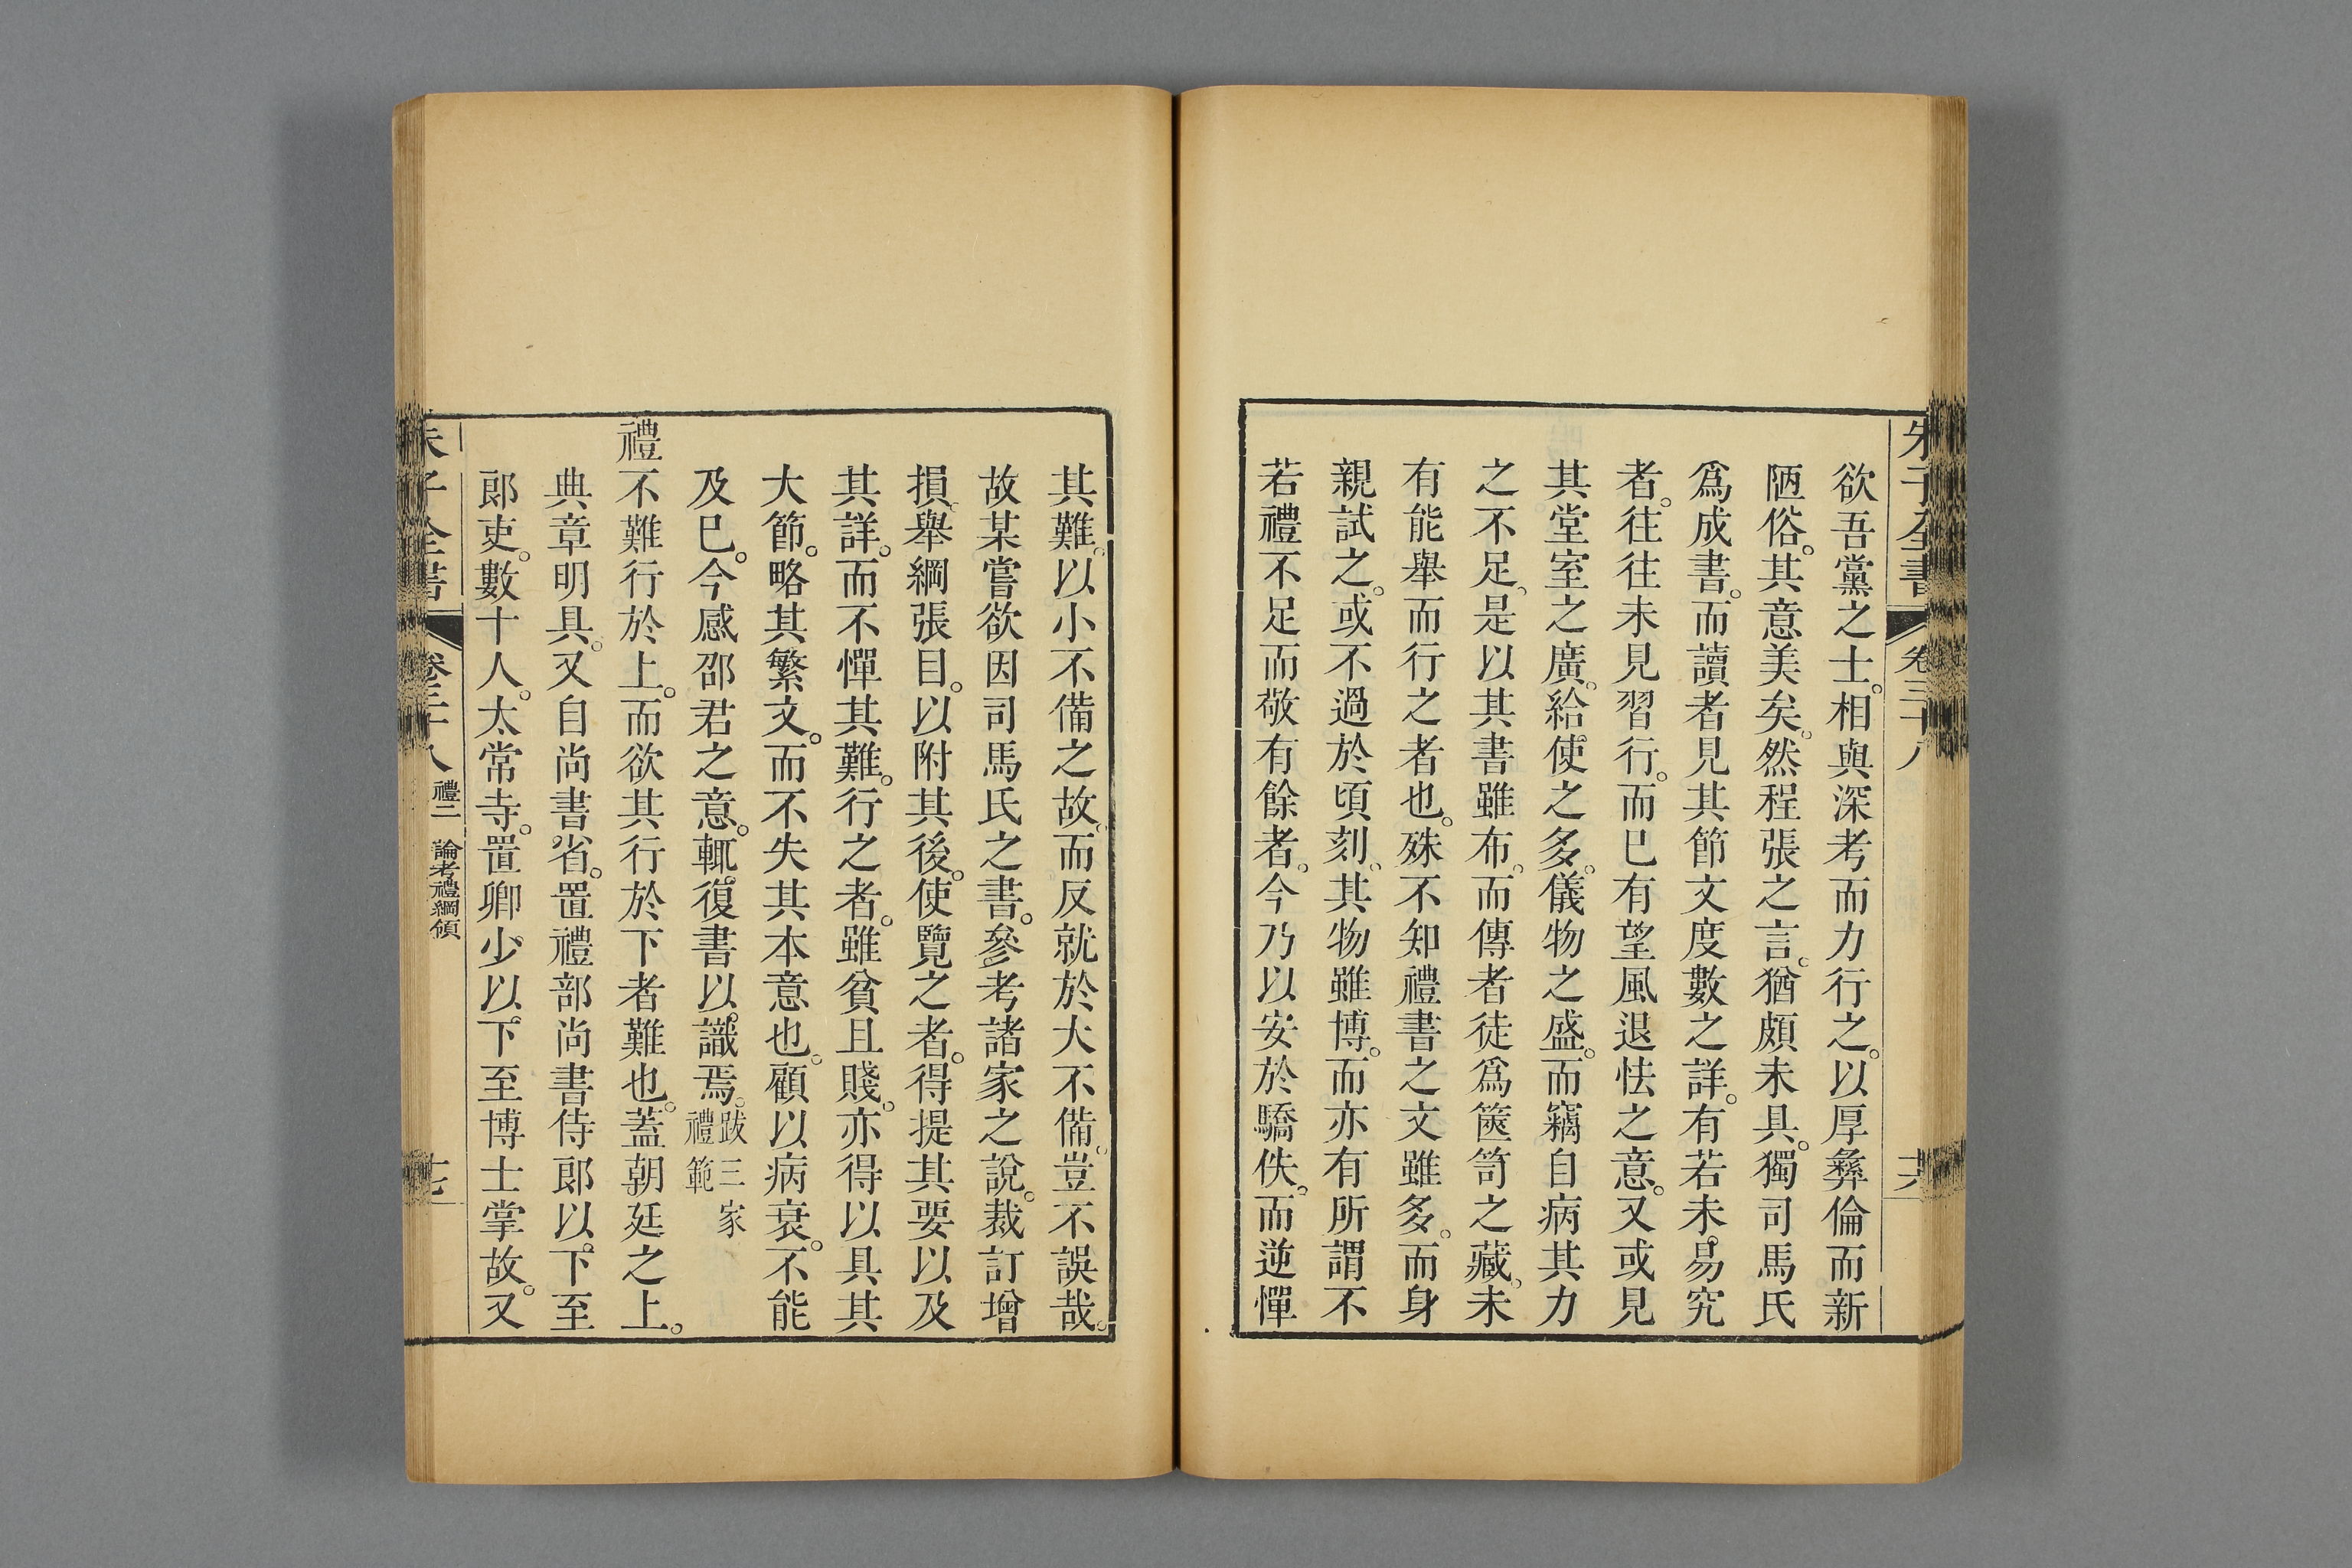 朱子全書 卷三十八 十六
欲吾黨之士。相與深考而力行之。以厚彝倫而新
陋俗。其意美矣。然程張之言。猶頗未具。獨司馬氏
爲成書。而讀者見其節文度數之詳。有若未易究
者。往往未見習行。而已有望風退怯之意。又或見
其堂室之廣。給使之多。儀物之盛。而竊自病其力
之不足。是以其書雖布。而傳者徒爲篋笥之藏。未
有能舉而行之者也。殊不知禮書之文雖多。而身
親試之。或不過於頃刻。其物雖博。而亦有所謂不
若禮不足而敬有餘者。今乃以安於驕佚。而逆憚
其難。以小不備之故。而反就於大不備。豈不誤哉。
故某嘗欲因司馬氏之書。參考諸家之說。裁訂增
損。舉綱張目。以附其後。使覽之者。得提其要以及
其詳。而不憚其難。行之者。雖貧且賤。亦得以具其
大節。略其繁文。而不失其本意也。顧以病衰。不能
及已。今感邵君之意。輒復書以識焉。跋三家禮範
禮不難行於上。而欲其行於下者難也。蓋朝廷之上。
典章明具。又自尚書省。置禮部尚書侍郎以下至
郎吏。數十人。太常寺。置卿少以下至博士掌故。又
朱子全書 卷三十八 禮二 論考禮綱領 十七